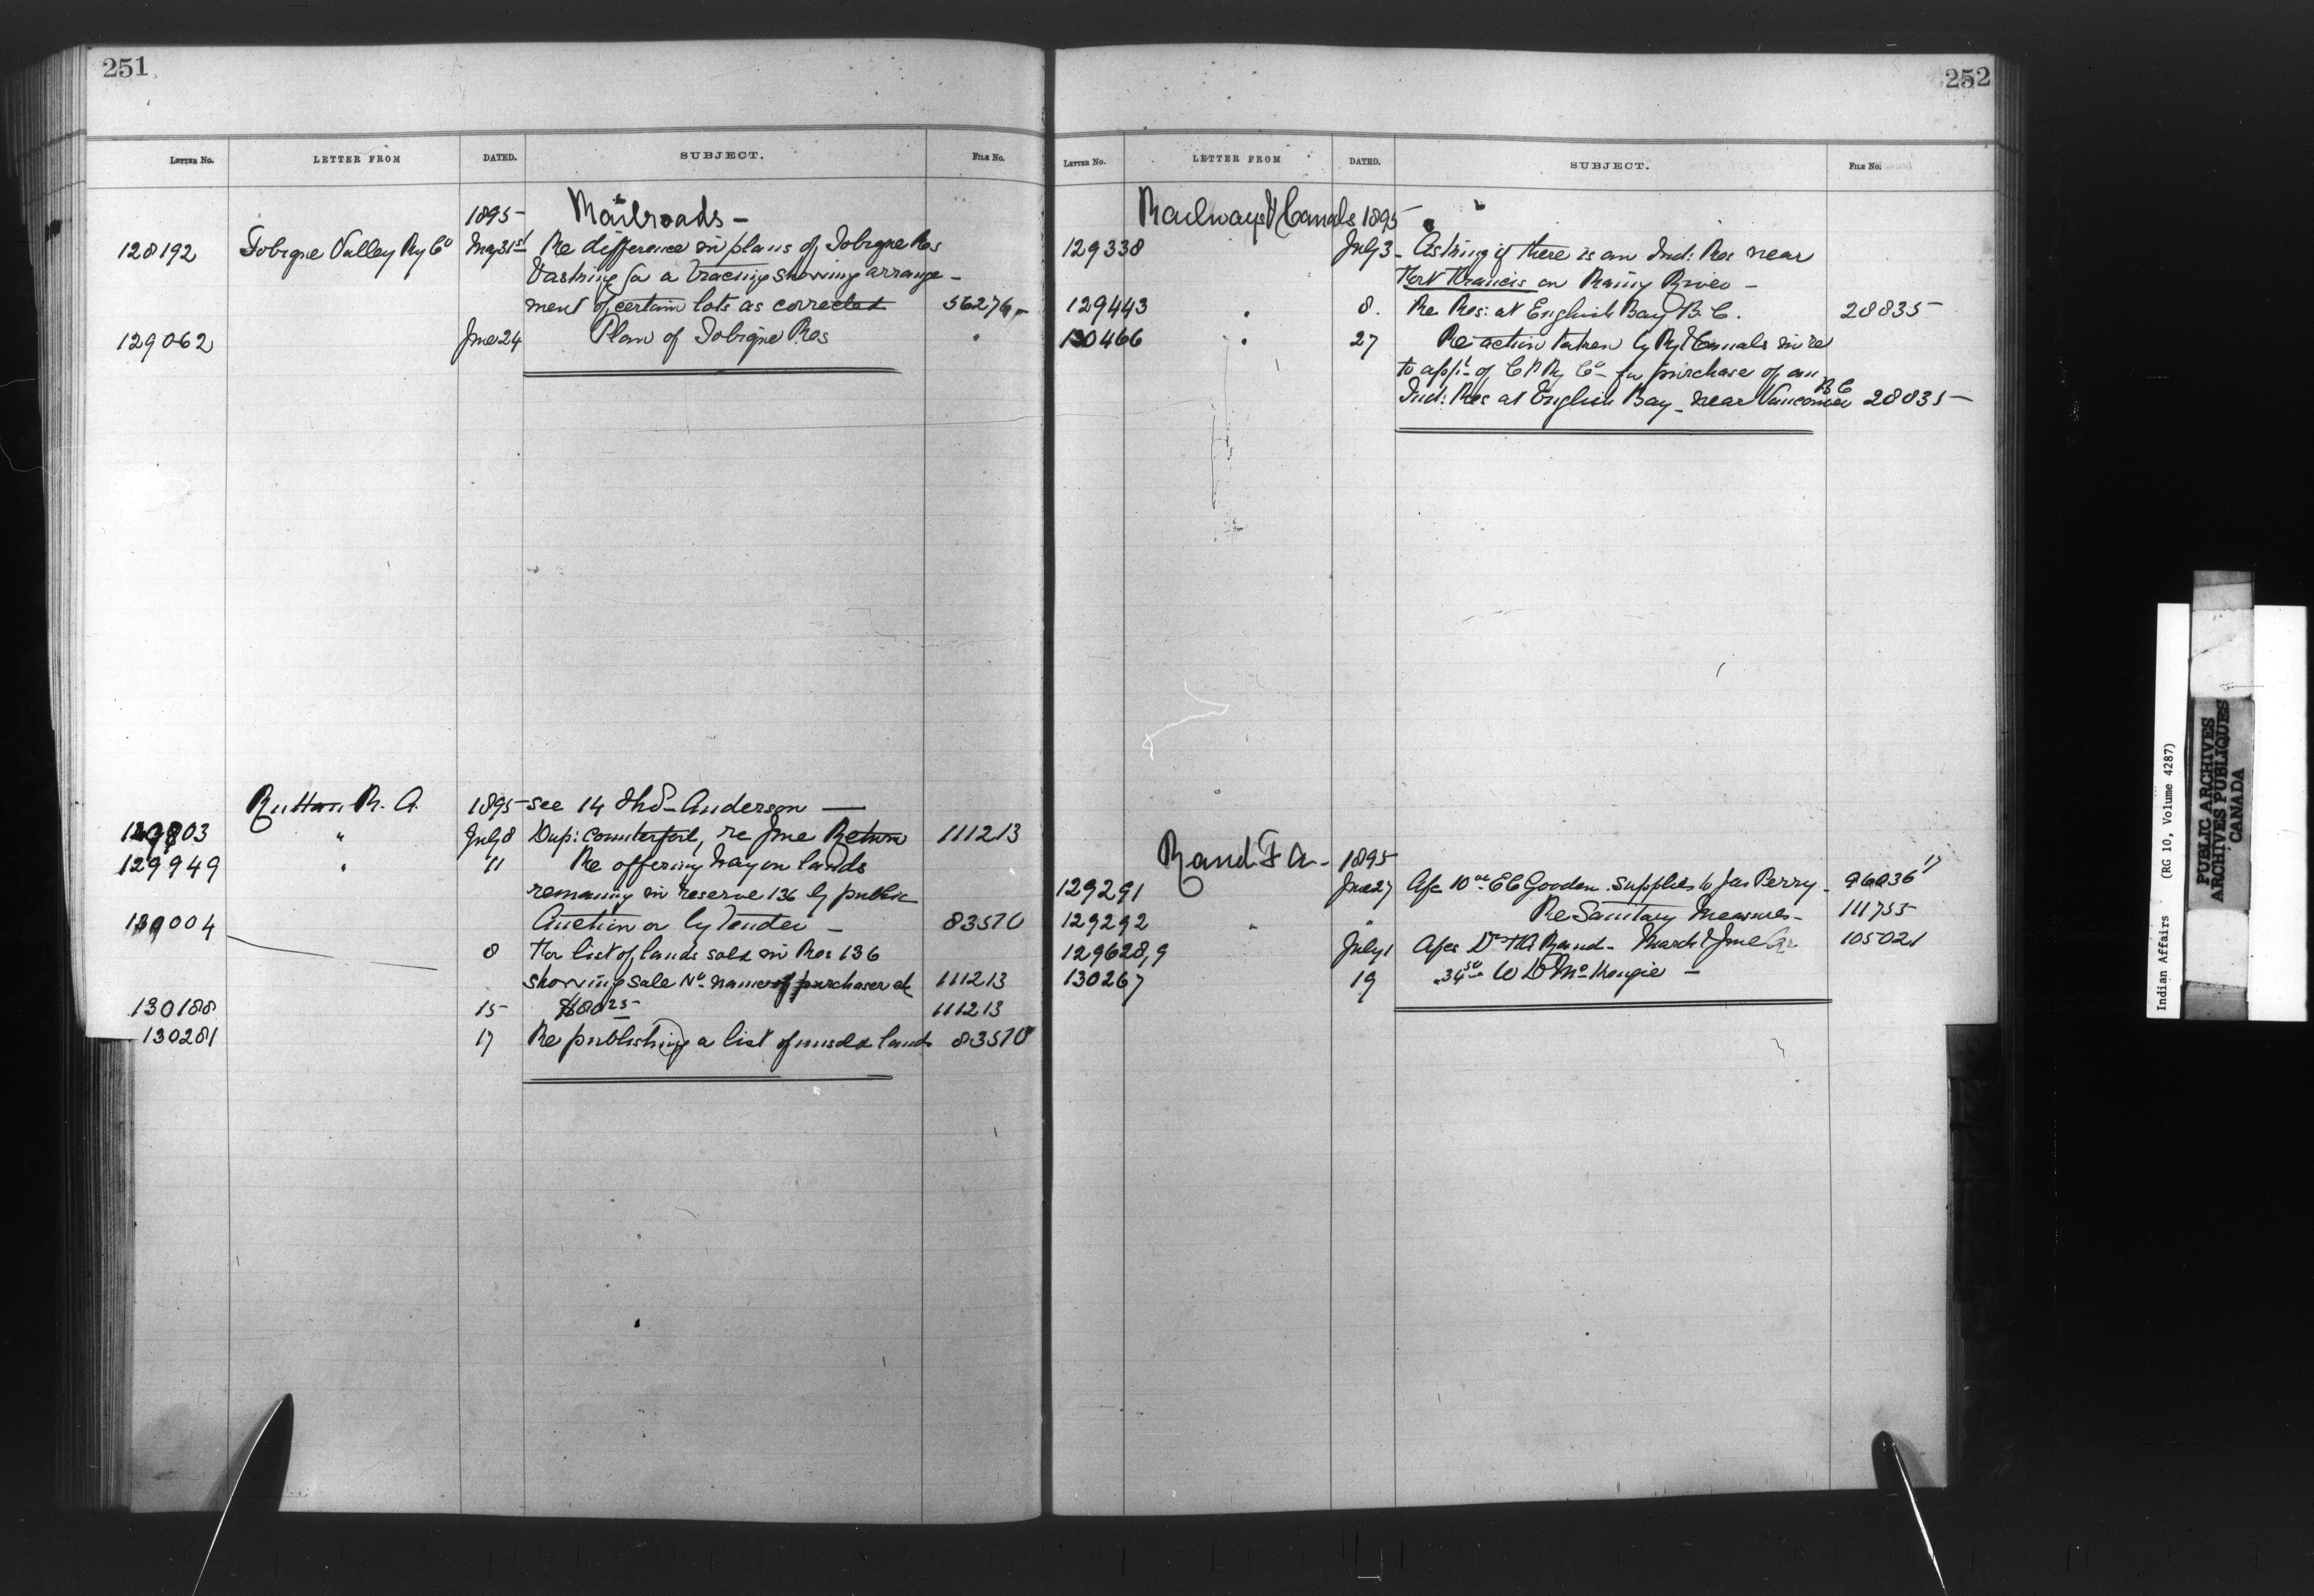 251
LETTER No. LETTER FROM DATED. SUBJECT. FILE No.
1895 Railroads -
128192 Tobique Valley Ry Co May 31st Re difference in plans of Tobique Res
& asking for a tracing showing arrange-
ment of certain lots as corrected 56276
129062 June 24 Plan of Tobique Res "
Ruttan R. A. 1895 see 14 Anderson
129803 " July 8 Dup: Counterfoil, re June Return 111213
129949 " 11 Re offering Hay on lands
remaining in reserve 136 by public
Auction or by tender - 83570
004 8 For list of lands sold in Res 136
showing sale No. name of purchaser etc 111213
130188 15 111213
130281 17 Re publishing a list of unsold lands 83570
252
LETTER No. LETTER FROM DATED. SUBJECT. FILE No.
Railways & Canals 1895
129338 July 3 - Asking if there is an Ind: Res near
Fort Francis on Rainy River -
129443 " 8. Re Res: at English Bay B. C. 28835
130466 " 27 Re action taken by Ry & Canals in re
to appln of C P Ry Co for purchase of an
Ind: Res at English Bay - near Vancouver B C 28835 -
Rand F A - 1895
129291 June 27 A/c 10 E C Gooden supplies to Jas Perry - 96036
129292 " " Re Sanitary Measures - 111755
129628,9 July 1 A/cs Dr F A Rand - March & June Qr 105021
130267 19 W D McKenzie -
Indian Affairs (RG 10, Volume 4287)
PUBLIC ARCHIVES
ARCHIVES PUBLIQUES
CANADA